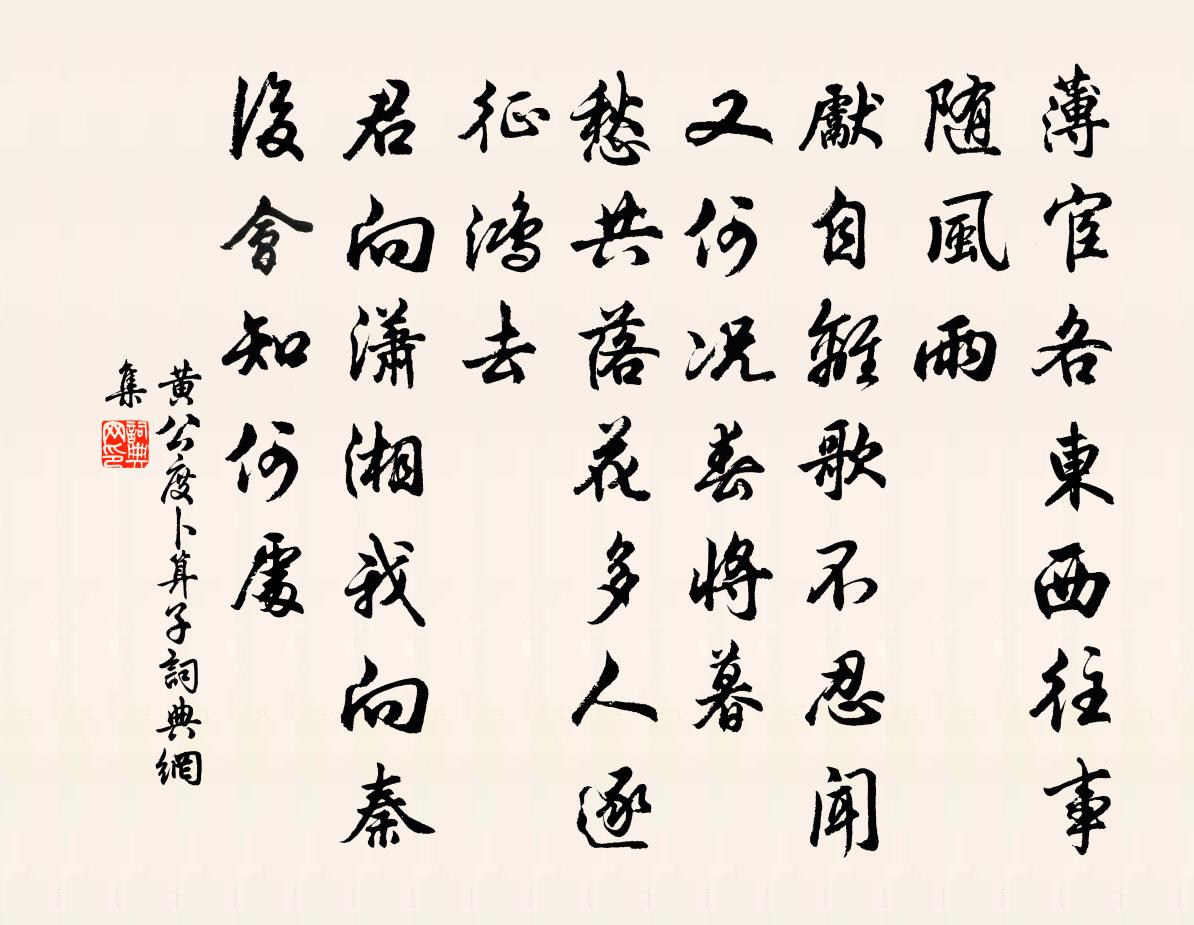 薄宦各東西往事
随風雨
獻自離歌不忍聞
又何况春將暮
愁共落花多人逐
征鴻去
君向瀟湘我向秦
後會知何處
黄公度卜算子詞典網
集
詞典
网印